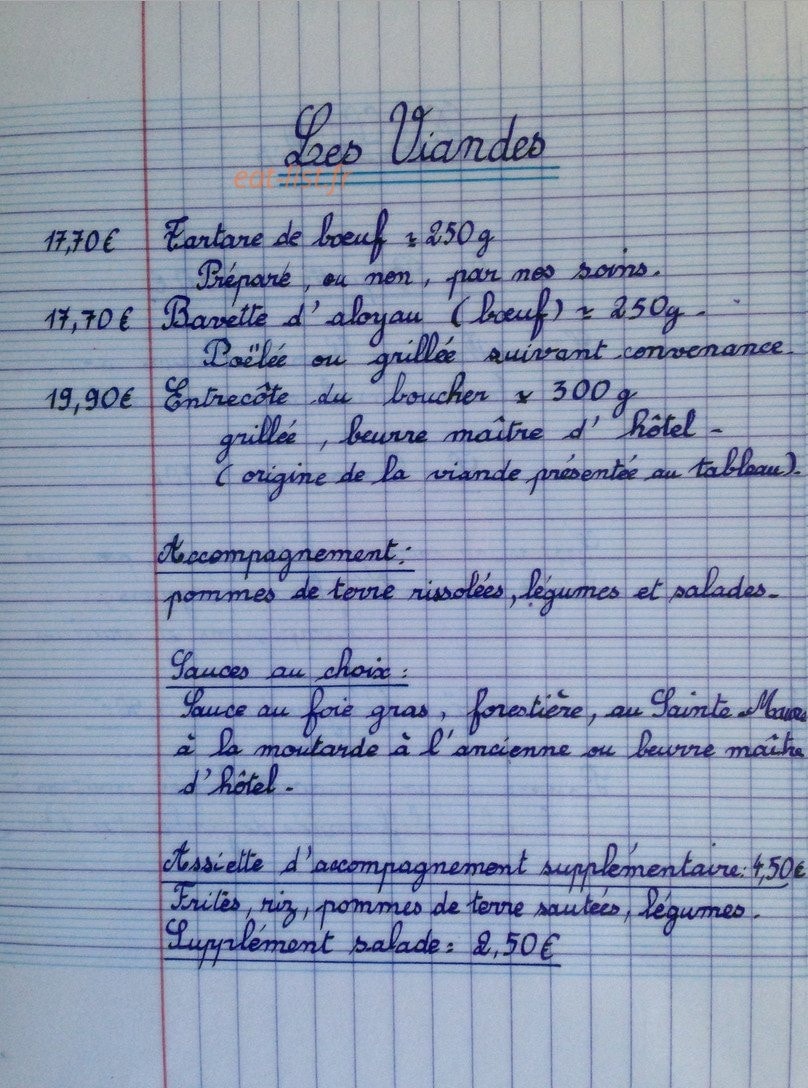 Les Viandes
eat-list.fr
17,70€ Tartare de bœuf ≈ 250g
Préparé, ou non, par nos soins.
17,70€ Bavette d'aloyau (bœuf) ≈ 250g.
Poëlée ou grillée suivant convenance.
19,90€ Entrecôte du boucher ≈ 300g
grillée, beurre maître d'hôtel.
(origine de la viande présentée au tableau).
Accompagnement:
pommes de terre rissolées, légumes et salades.
Sauces au choix:
Sauce au foie gras, forestière, au Sainte
à la moutarde à l'ancienne ou beurre maître
d'hôtel.
Assiette d'accompagnement supplémentaire: 4,50€
Frites, riz, pommes de terre sautées, légumes.
Supplément salade: 2,50€